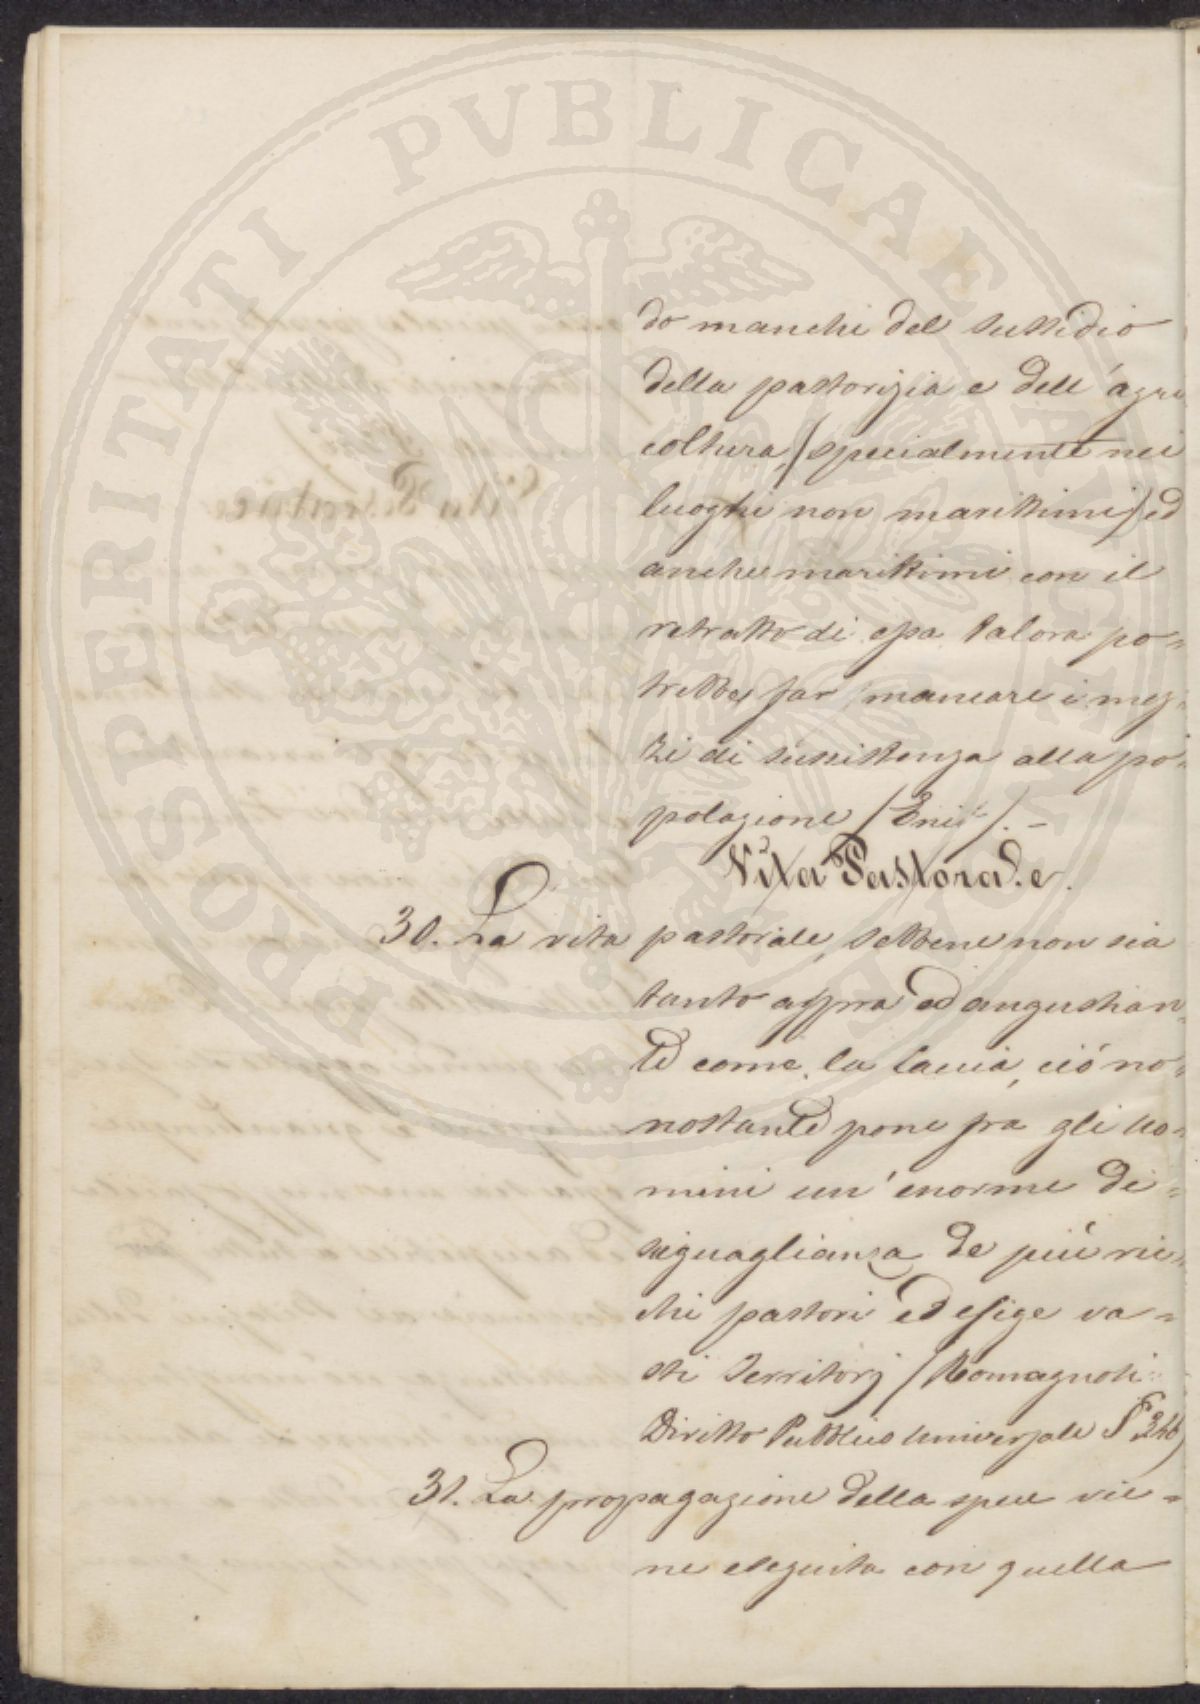 PROSPERITATI PVBLICAE AVGENDAE
do manchi del sussidio
della pastorizia e dell'agri
coltura, (specialmente nei
luoghi non marittimi) ed
anche marittimi con il
retratto di essa talora po=
trebbe far mancare i mez=
zi di sussistenza alla po=
polazione / /. –
Vita Pastorale.
30. La vita pastorale, sebbene non sia
tanto aspra ed angustian=
te come la caccia, ciò no=
nostante pone fra gli uo=
mini un'enorme di=
suguaglianza de più ric=
chi pastori ed esige va=
sti territorj / Romagnosi
Diritto Pubblico universale § 346)
31. La propagazione della specie vie=
ne eseguita con quella